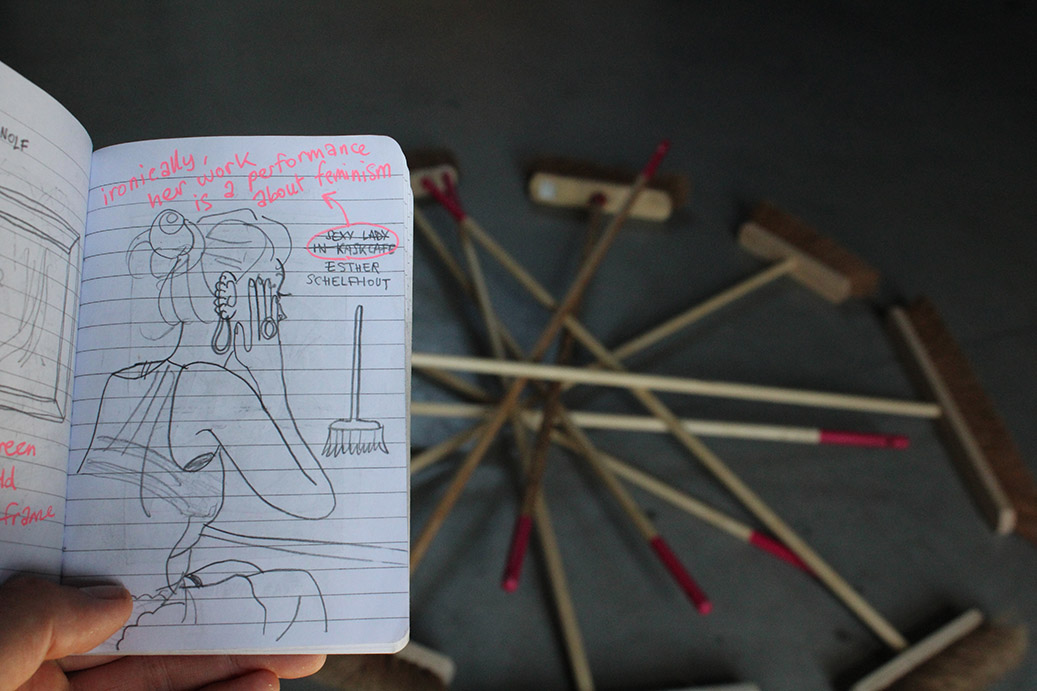 NOLF
reen
ld
frame
ironically,
her work
is a performance
about feminism
SEXY LADY
IN KASKCAFE
ESTHER
SCHELFHOUT